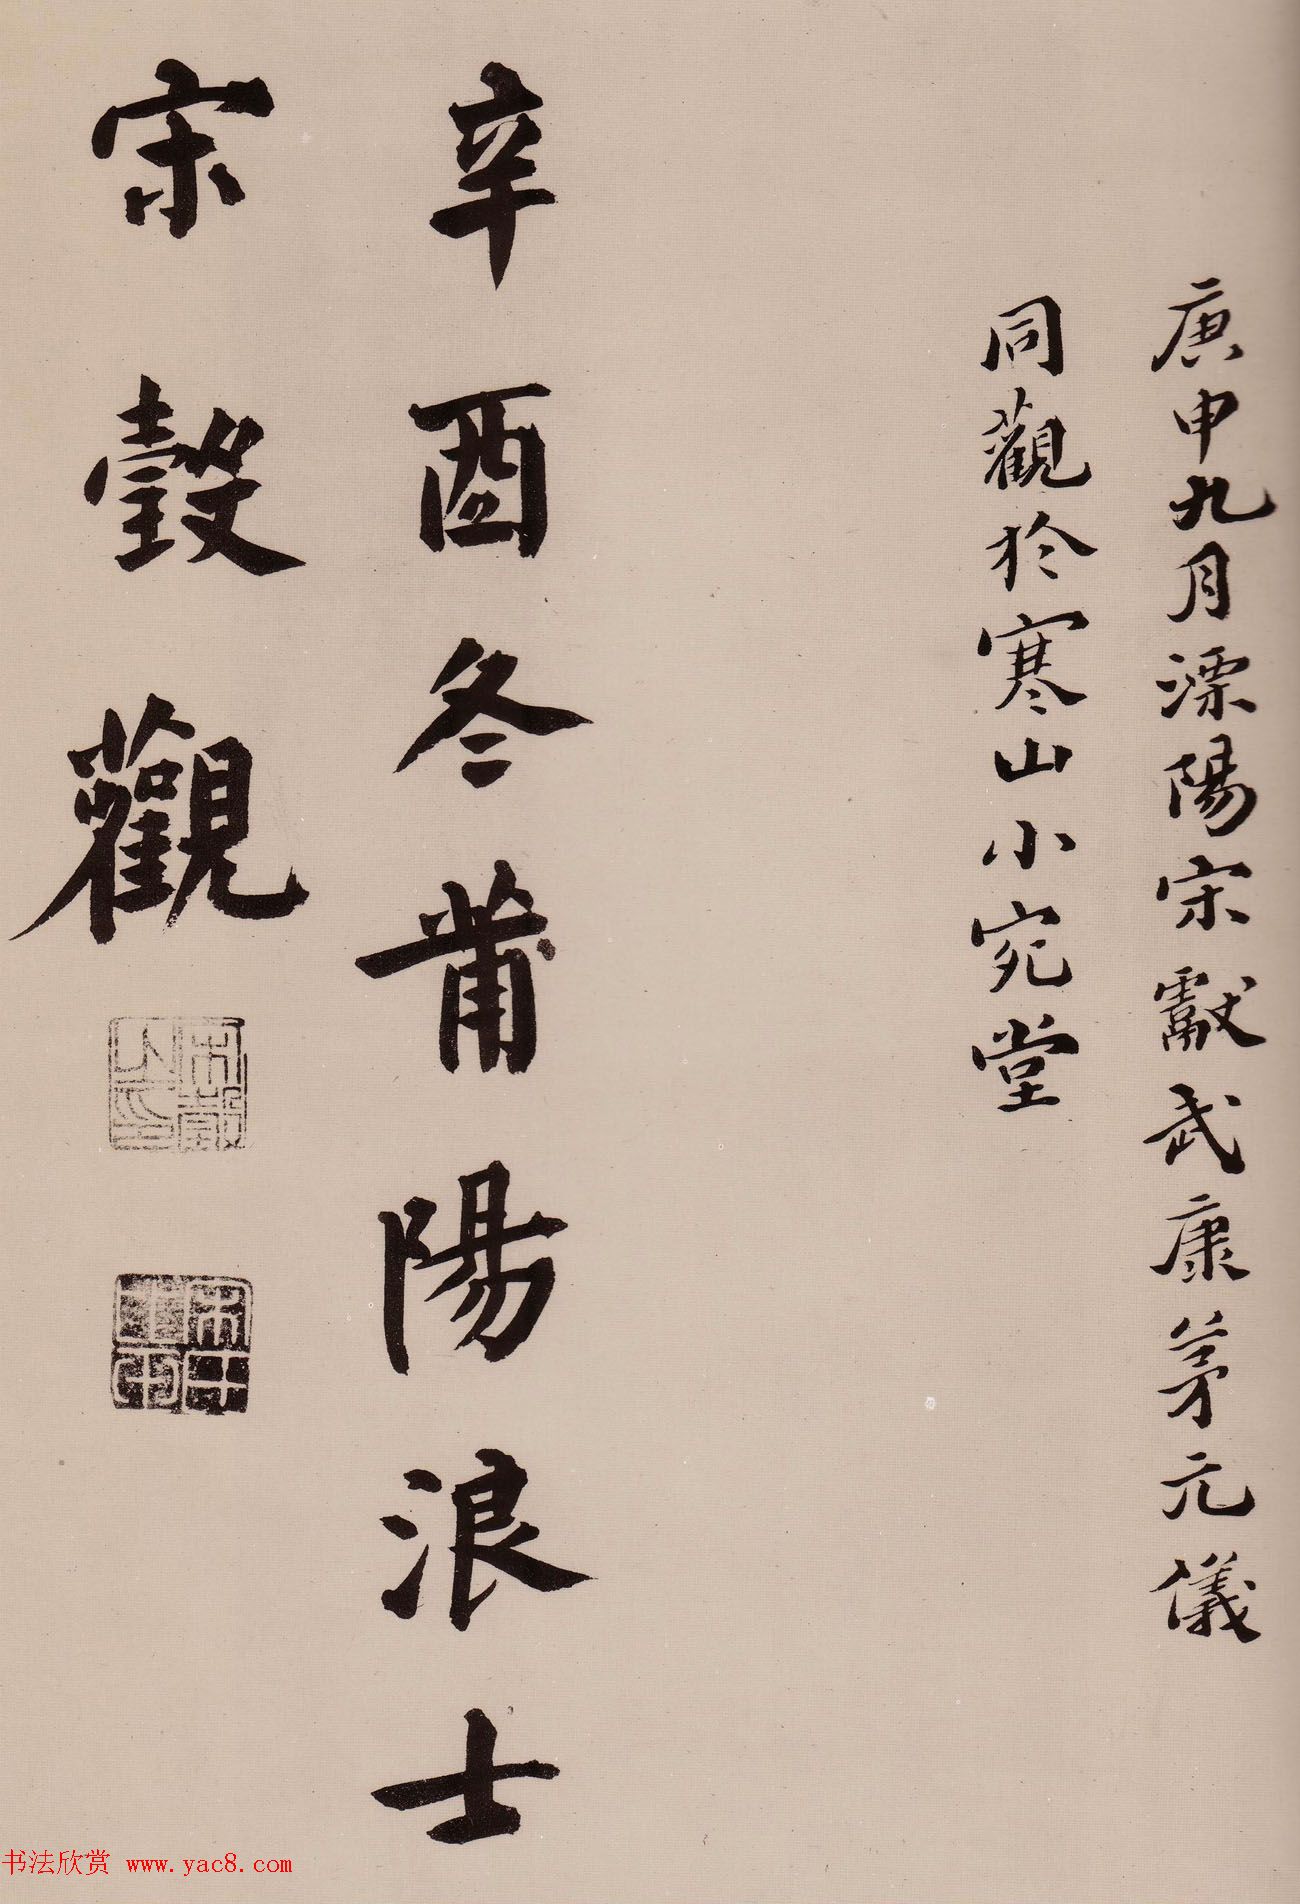 庚申九月溧陽宋獻武康茅元儀
同觀於寒山小宛堂
辛酉冬莆陽浪士
宋瑴觀
書法欣赏 www.yac8.com